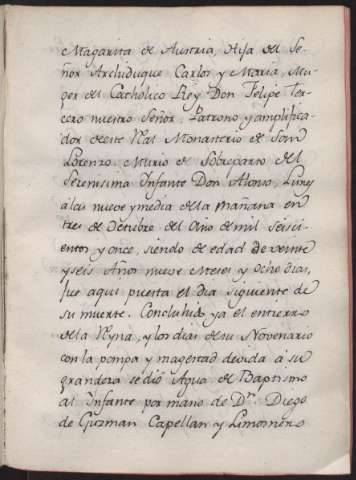 Magarita de Austria, Hija del Se-
ñor Archiduque Carlos y Maria, Mu-
ger del Catholico Rey Don Felipe Ter-
cero nuestro Señor, Patrono y amplifica-
dor deeste Real Monasterio de San
Lorenzo. Murio de Sobreparto del
Serenisimo Infante Don Alonso, Lunes
a las nueve y media de la mañana en
tres de Octubre del Año de mil seisci-
entos y once, siendo de edad de veinte
y seis Años nueve Meses y Ocho dias,
fue aqui puesta el dia siguiente de
su muerte. Concluhido ya el entierro
de la Reyna, y los dias de su Novenario
con la pompa y magestad devida à su
grandeza se dió Agua de Baptismo
al Infante por mano de Dn. Diego
de Guzman Capellan y Limosnero